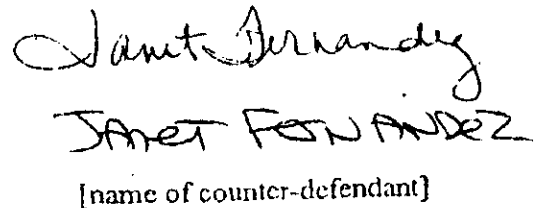 Janet Fernandez
JANET FERNANDEZ
[name of counter-defendant]